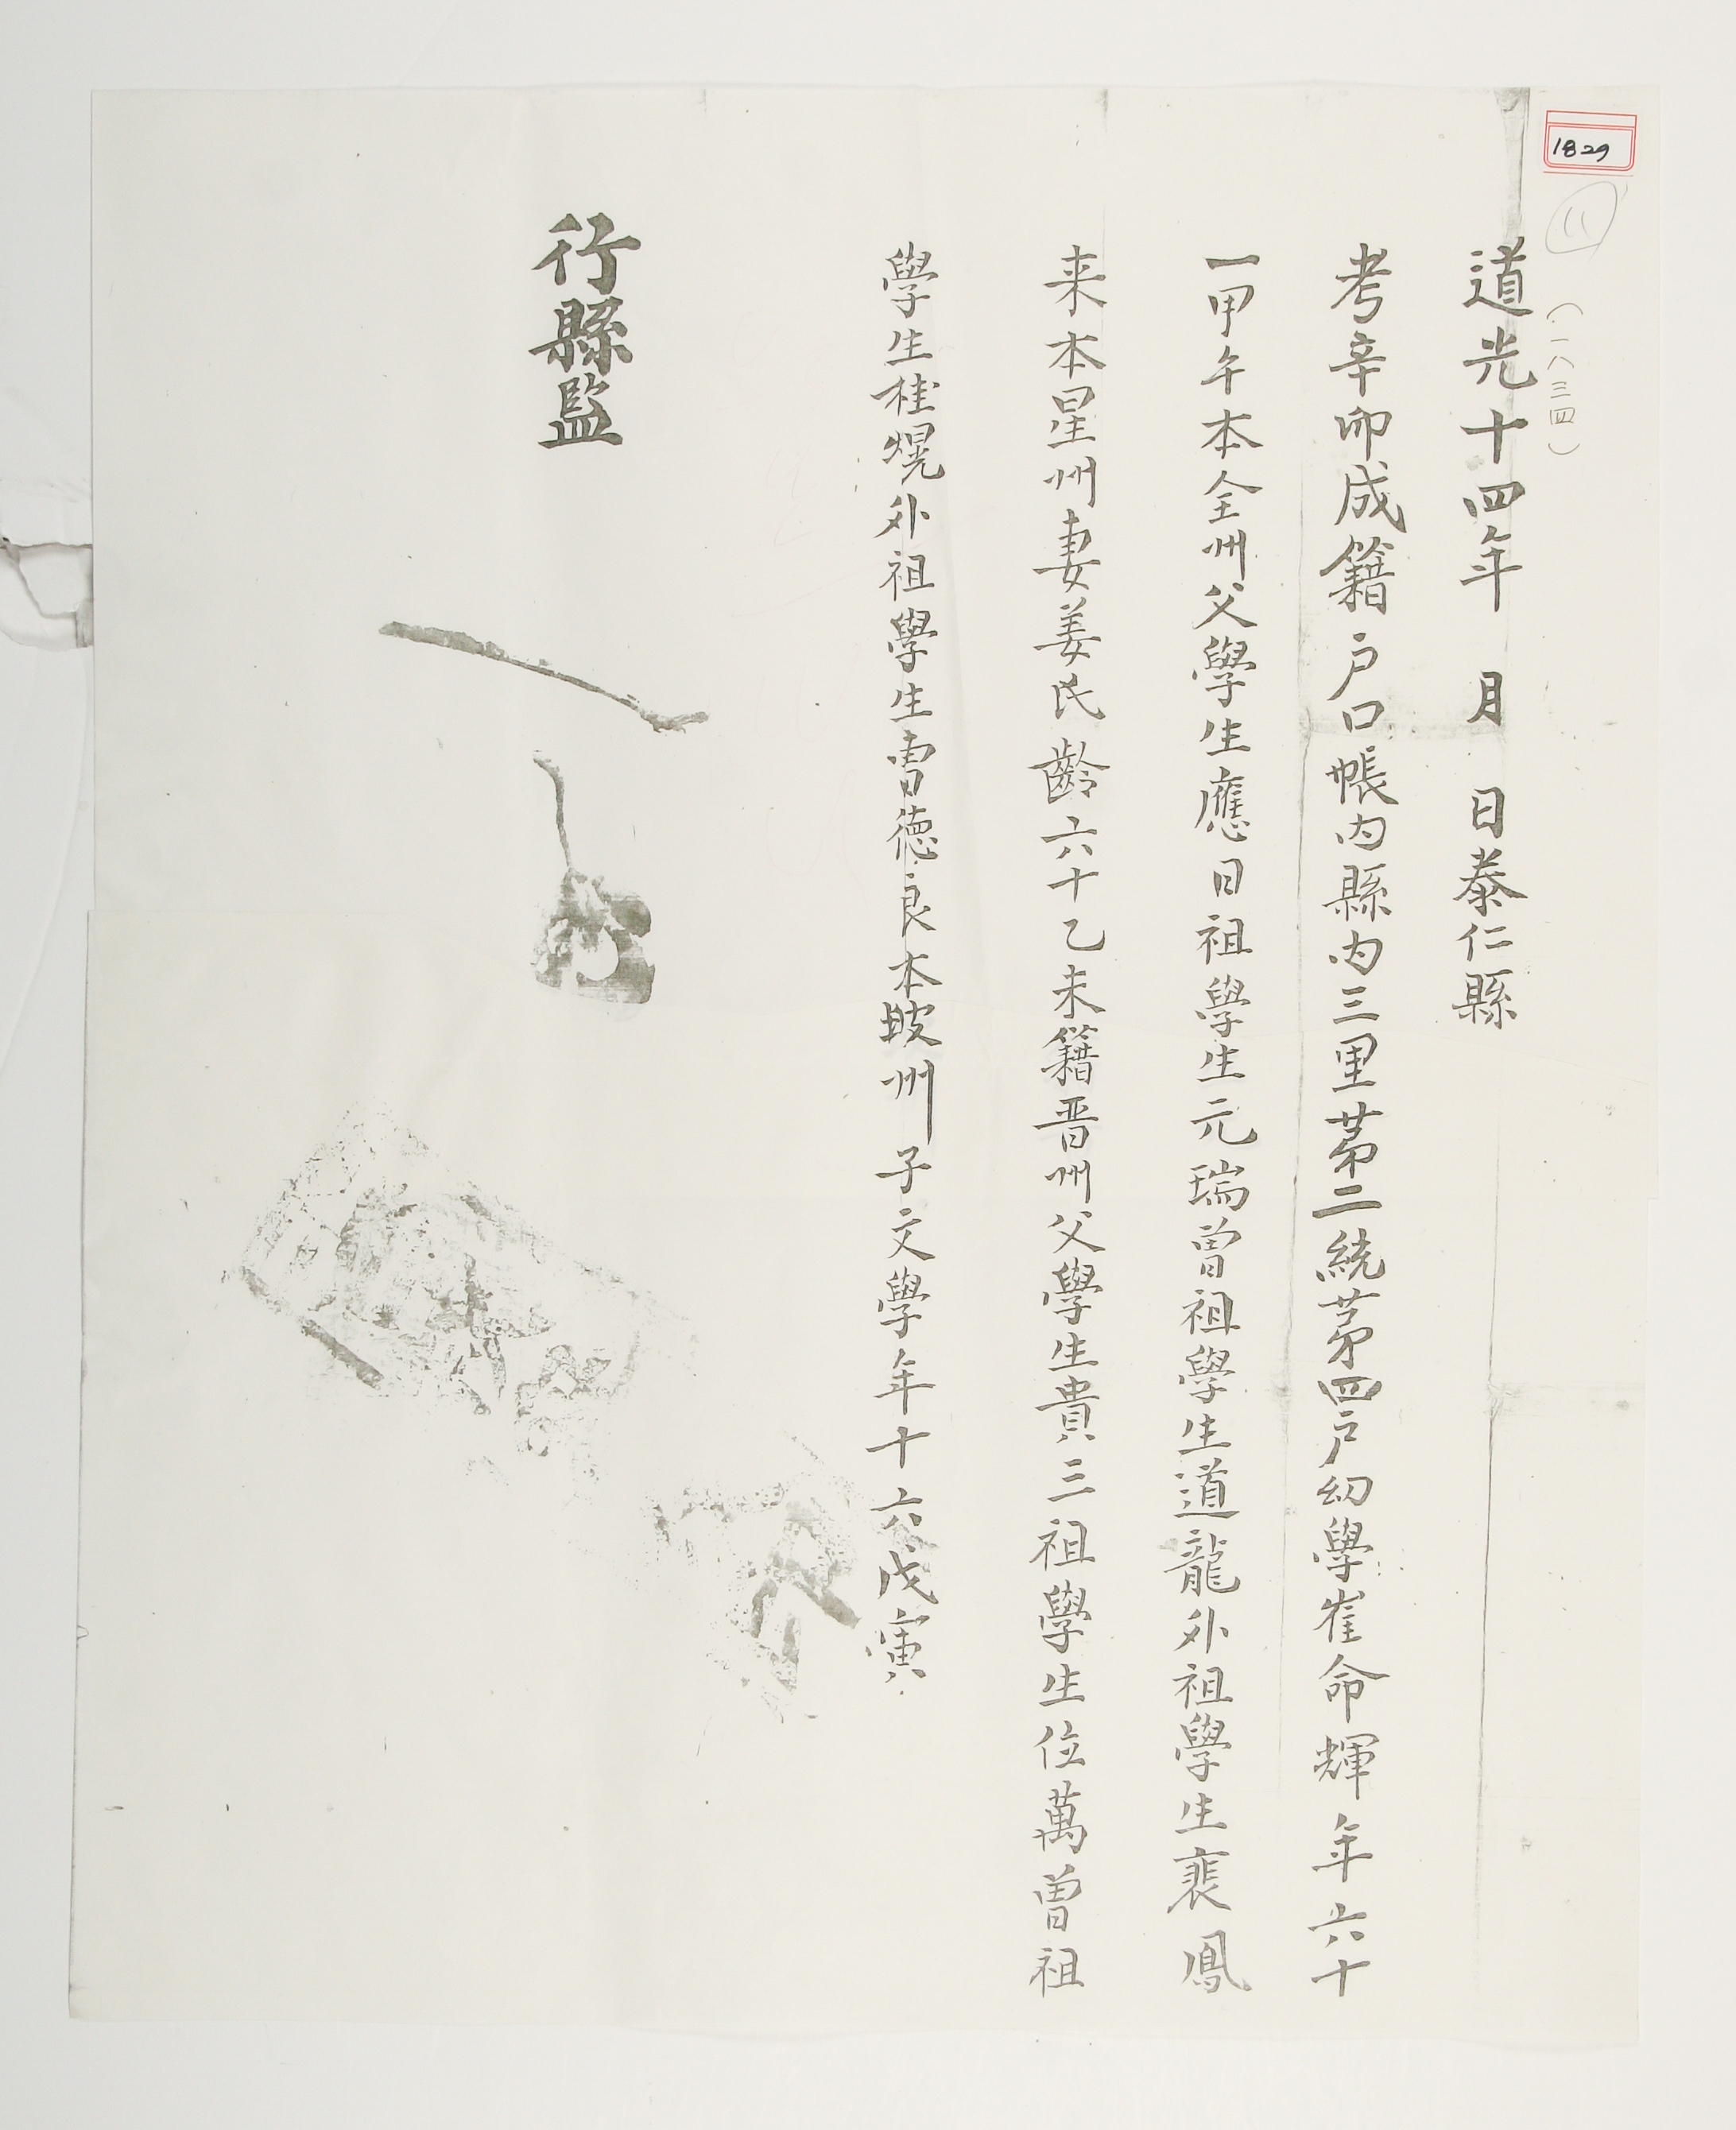 1829
(11)
(一八三四)
道光十四年 月 日泰仁縣
考辛卯成籍戶口帳内縣内三里苐二統苐四戶幼學崔命輝年六十
一甲午本全州父學生應日祖學生元瑞曾祖學生道龍外祖學生裵鳳
来本星州妻姜氏齡六十乙未籍晋州父學生貴三祖學生位萬曾祖
學生桂熀外祖學生曺德良本坡州子文學年十六戊寅
行縣監